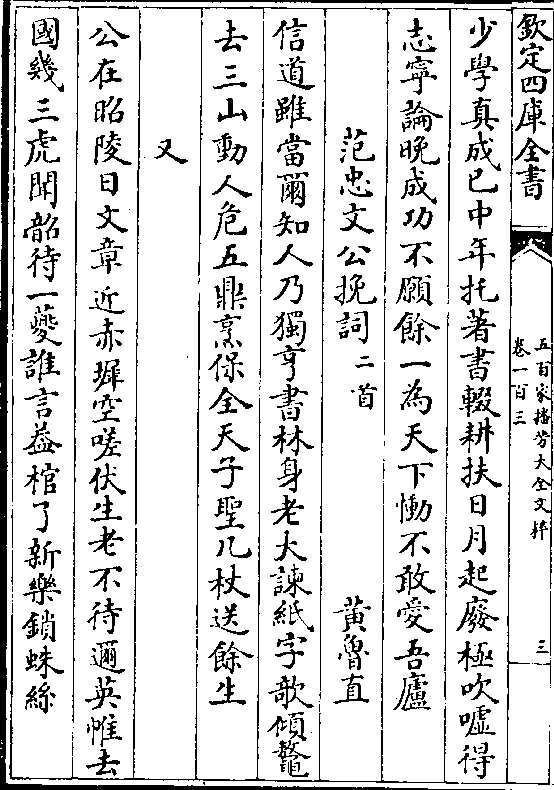 欽定四庫全書
五百家播芳大全文粹
卷一百三
三
少學真成已中年托著書輟耕扶日月起廢極吹噓得
志寧論晚成功不願餘一為天下慟不敢愛吾廬
范忠文公挽詞二首 黃魯直
信道雖當爾知人乃獨亨書林身老大諫紙字欹傾鼇
去三山動人危五鼎烹保全天子聖几杖送餘生
又
公在昭陵日文章近赤墀空嗟伏生老不待邇英帷去
國幾三虎聞韶待一夔誰言蓋棺了新樂鎖蛛絲